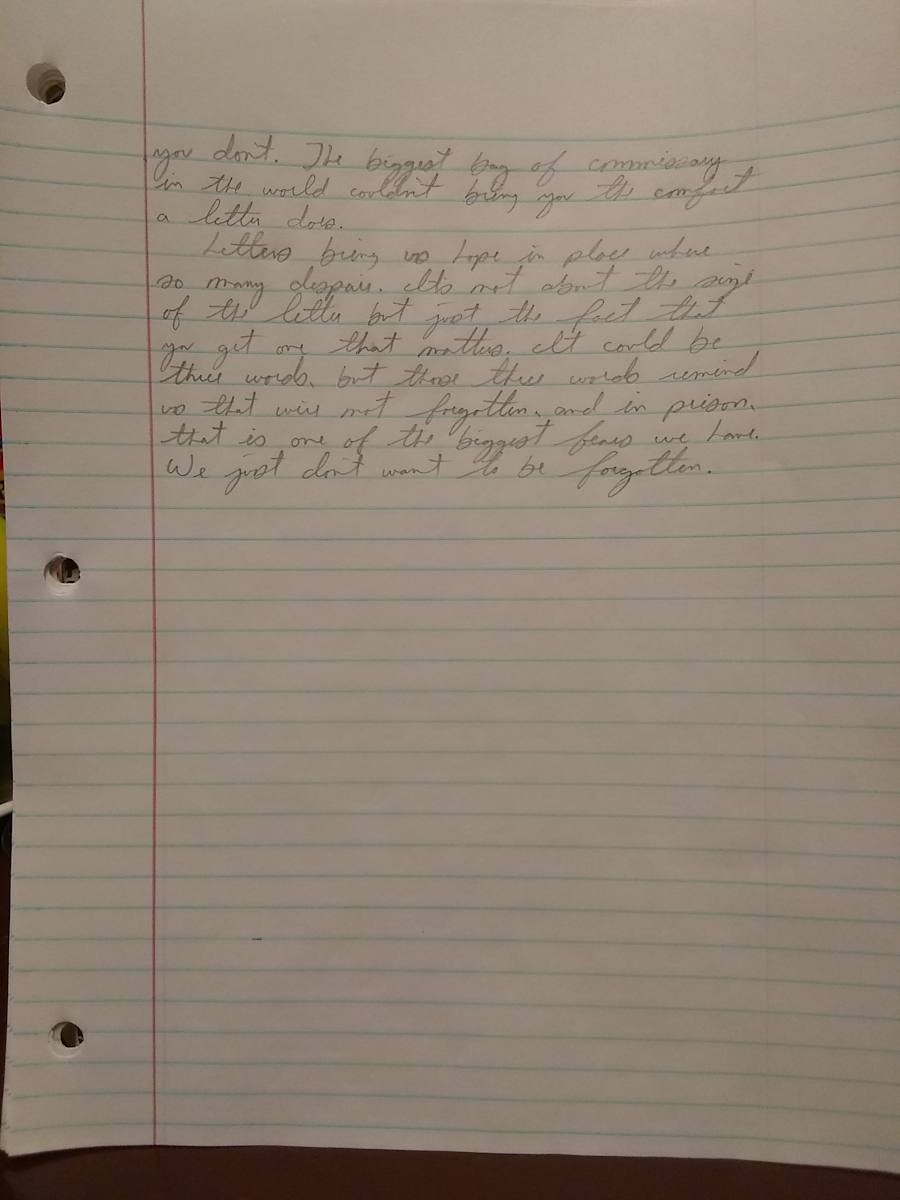 you don't. The biggest bag of commissary
in the world couldn't bring you the comfort
a letter does.
Letters bring us hope in place where
so many despair. It's not about the size
of the letter but just the fact that
you get one that matters. It could be
three words, but those three words remind
us that we're not forgotten, and in prison,
that is one of the biggest fears we have.
We just don't want to be forgotten.